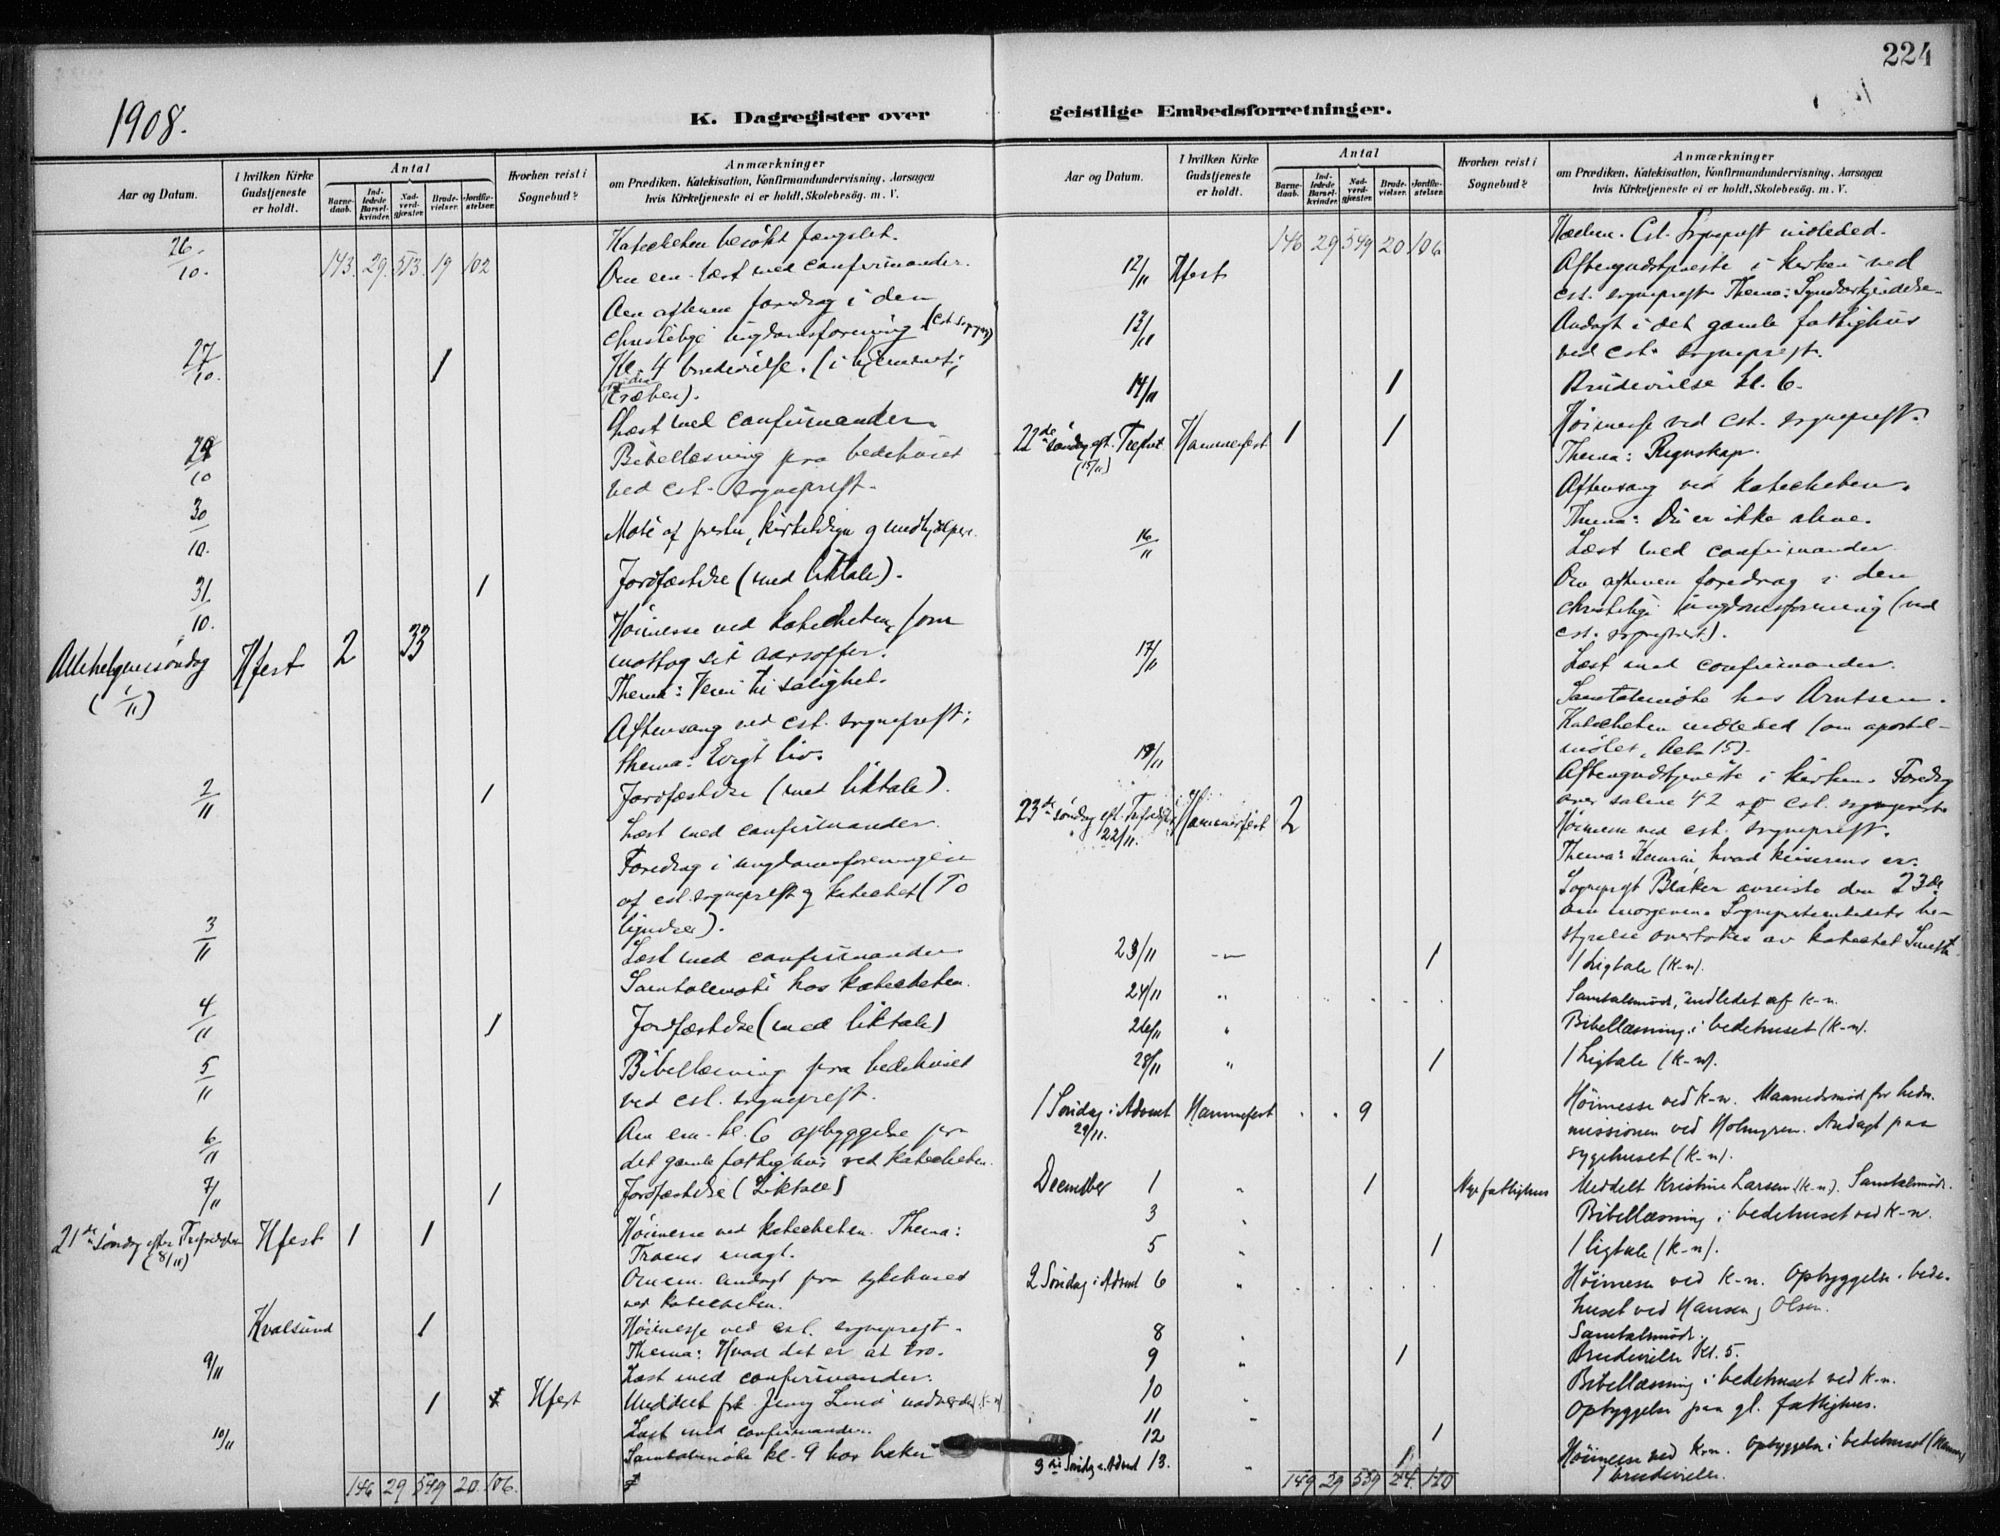 224
1908.
K. Dagregister over geistlige Embedsforretninger.
Aar og Datum.
I hvilken Kirke Gudstjeneste er holdt.
Antal
Barnedaab.
Indledede Barselkvinder.
Nadverdgjæster.
Brudevielser.
Jordfæstelser.
Hvorhen reist i Sognebud?
Anmærkninger
om Prædiken, Katekisation, Konfirmandundervisning, Aarsagen
hvis Kirketjeneste ei er holdt, Skolebesøg. m. V.
26/10. 143. 29. 513. 19 102 Katecheten besøkt fængslet.
Om em. læst med confirmander.
Om aftenen foredrag i den
christelige ungdomsforening (cst. sogepr)
27/10. 1 Kl. 4 brudevielse.
Læst med confirmander.
/10 Bibellæsning paa bedehuset
ved cst. sogneprest.
30/10. Møte af prester, kirketjener og medhjælpere.
31/10. 1 Jordfæstelse (med liktale).
Allehelgensøndag (1/11) Hfest 2 33 Høimesse ved katecheten, som
mottog sit aarsoffer.
Thema: Veien til salighet.
Aftensang ved cst. sogneprest;
thema: Evigt liv.
2/11 1 Jordfæstelse (med liktale).
Læst med confirmander.
Foredrag i ungdomsforeningen
af cst. sogneprest og katechet (To
3/11 Læst med confirmander
Samtalemøte hos katecheten.
4/11 1 Jordfæstelse (med liktale)
5/11 Bibellæsning paa bedehuset
ved cst. sogneprest.
6/11 Om em. kl. 6 opbyggelse paa
det gamle fattighus ved katecheten.
7/11 1 Jordfæstelse (Liktale)
21de søndag efter Trefoldighet (8/11) Hfest 1 1 Høimesse ved katecheten. Thema:
Troens magt.
Om em. andagt paa sykehuset
ved katecheten.
Kvalsund 1 Høimesse ved cst. sogneprest.
Thema: Hvad det er at tro.
9/11 Læst med confirmander.
1 Hfest Meddelt frk Jenny Lund nadverden (K-n)
10/11 Læst med confirmander.
Samtalemøte kl. 9 hos
146 29 549 20. 106.
Aar og Datum.
I hvilken Kirke Gudstjeneste er holdt.
Antal
Barnedaab.
Indledede Barselkvinder.
Nadverdgjæster.
Brudevielser.
Jordfæstelser.
Hvorhen reist i Sognebud?
Anmærkninger
om Prædiken, Katekisation, Konfirmandundervisning, Aarsagen
hvis Kirketjeneste ei er holdt, Skolebesøg. m. V.
146 29 549 20 106 Cst. sogneprest indleded.
12/11 Hfest Aftengudstjeneste i kirken ved
cst. sogneprest. Thema: Syndserkjendelse.
13/11 Andagt i det gamle fattighus
ved cst. sogneprest.
14/11 1 Brudevielse kl. 6.
22de søndag eft. Trefold. (15/11) Hammerfest 1 1 Høimesse ved cst. sogneprest.
Thema: Regnskap.
Aftensang ved katecheten.
Thema: Du er ikke alene.
16/11 Læst med confirmander.
Om aftenen foredrag i den
christelige ungdomsforening (ved
cst. sogneprest).
17/11 Læst med confirmander.
Samtalemøte hos Arntsen.
Katecheten indleded (om apostel-
møtet, Acta 15).
19/11 Aftengudstjeneste i kirken. Foredrag
over salme 42 af cst. sogneprest
23de søndag eft. Trefoldighet 22/11. Hammerfest 2 Høimesse ved cst. sogneprest.
Thema: Keiseren hvad keiserens er.
Sogneprest Blaker avreiste den 23de
om morgenen. Sogneprestembedets be-
styrelse overtokes av katechet
23/11 1 1 Ligtale (K-n).
24/11 Samtalemøde, indledet af K-n.
26/11 Bibellæsning i bedehuset (K-n).
28/11 1 1 Ligtale (K-n).
1 Søndag i Advent 29/11. Hammerfest 9 Høimesse ved K-n. Maanedsmøde for hedn.
missionen ved Holmgren. Andagt paa
sygehuset (K-n).
December 1 1 Nye fattighus Meddelt Kristine Larsen (K-n). Samtalemøde.
3 Bibellæsning i bedehuset ved K-n.
5 1 1 ligtale (K-n).
2 Søndag i Advent 6 Høimesse ved K-n. Opbyggelse i bede-
huset ved Hansen og Olsen.
8 Samtalemøde.
9 1 Brudevielse Kl. 5.
10 Bibellæsning i bedehuset ved K-n.
11 Opbyggelse paa gl. fattighus.
12 1
3die Søndag i Advent 13. 1 Høimesse ved K-n. Opbyggelse i bedehuset
1 brudevielse.
149 29 559 24. 110